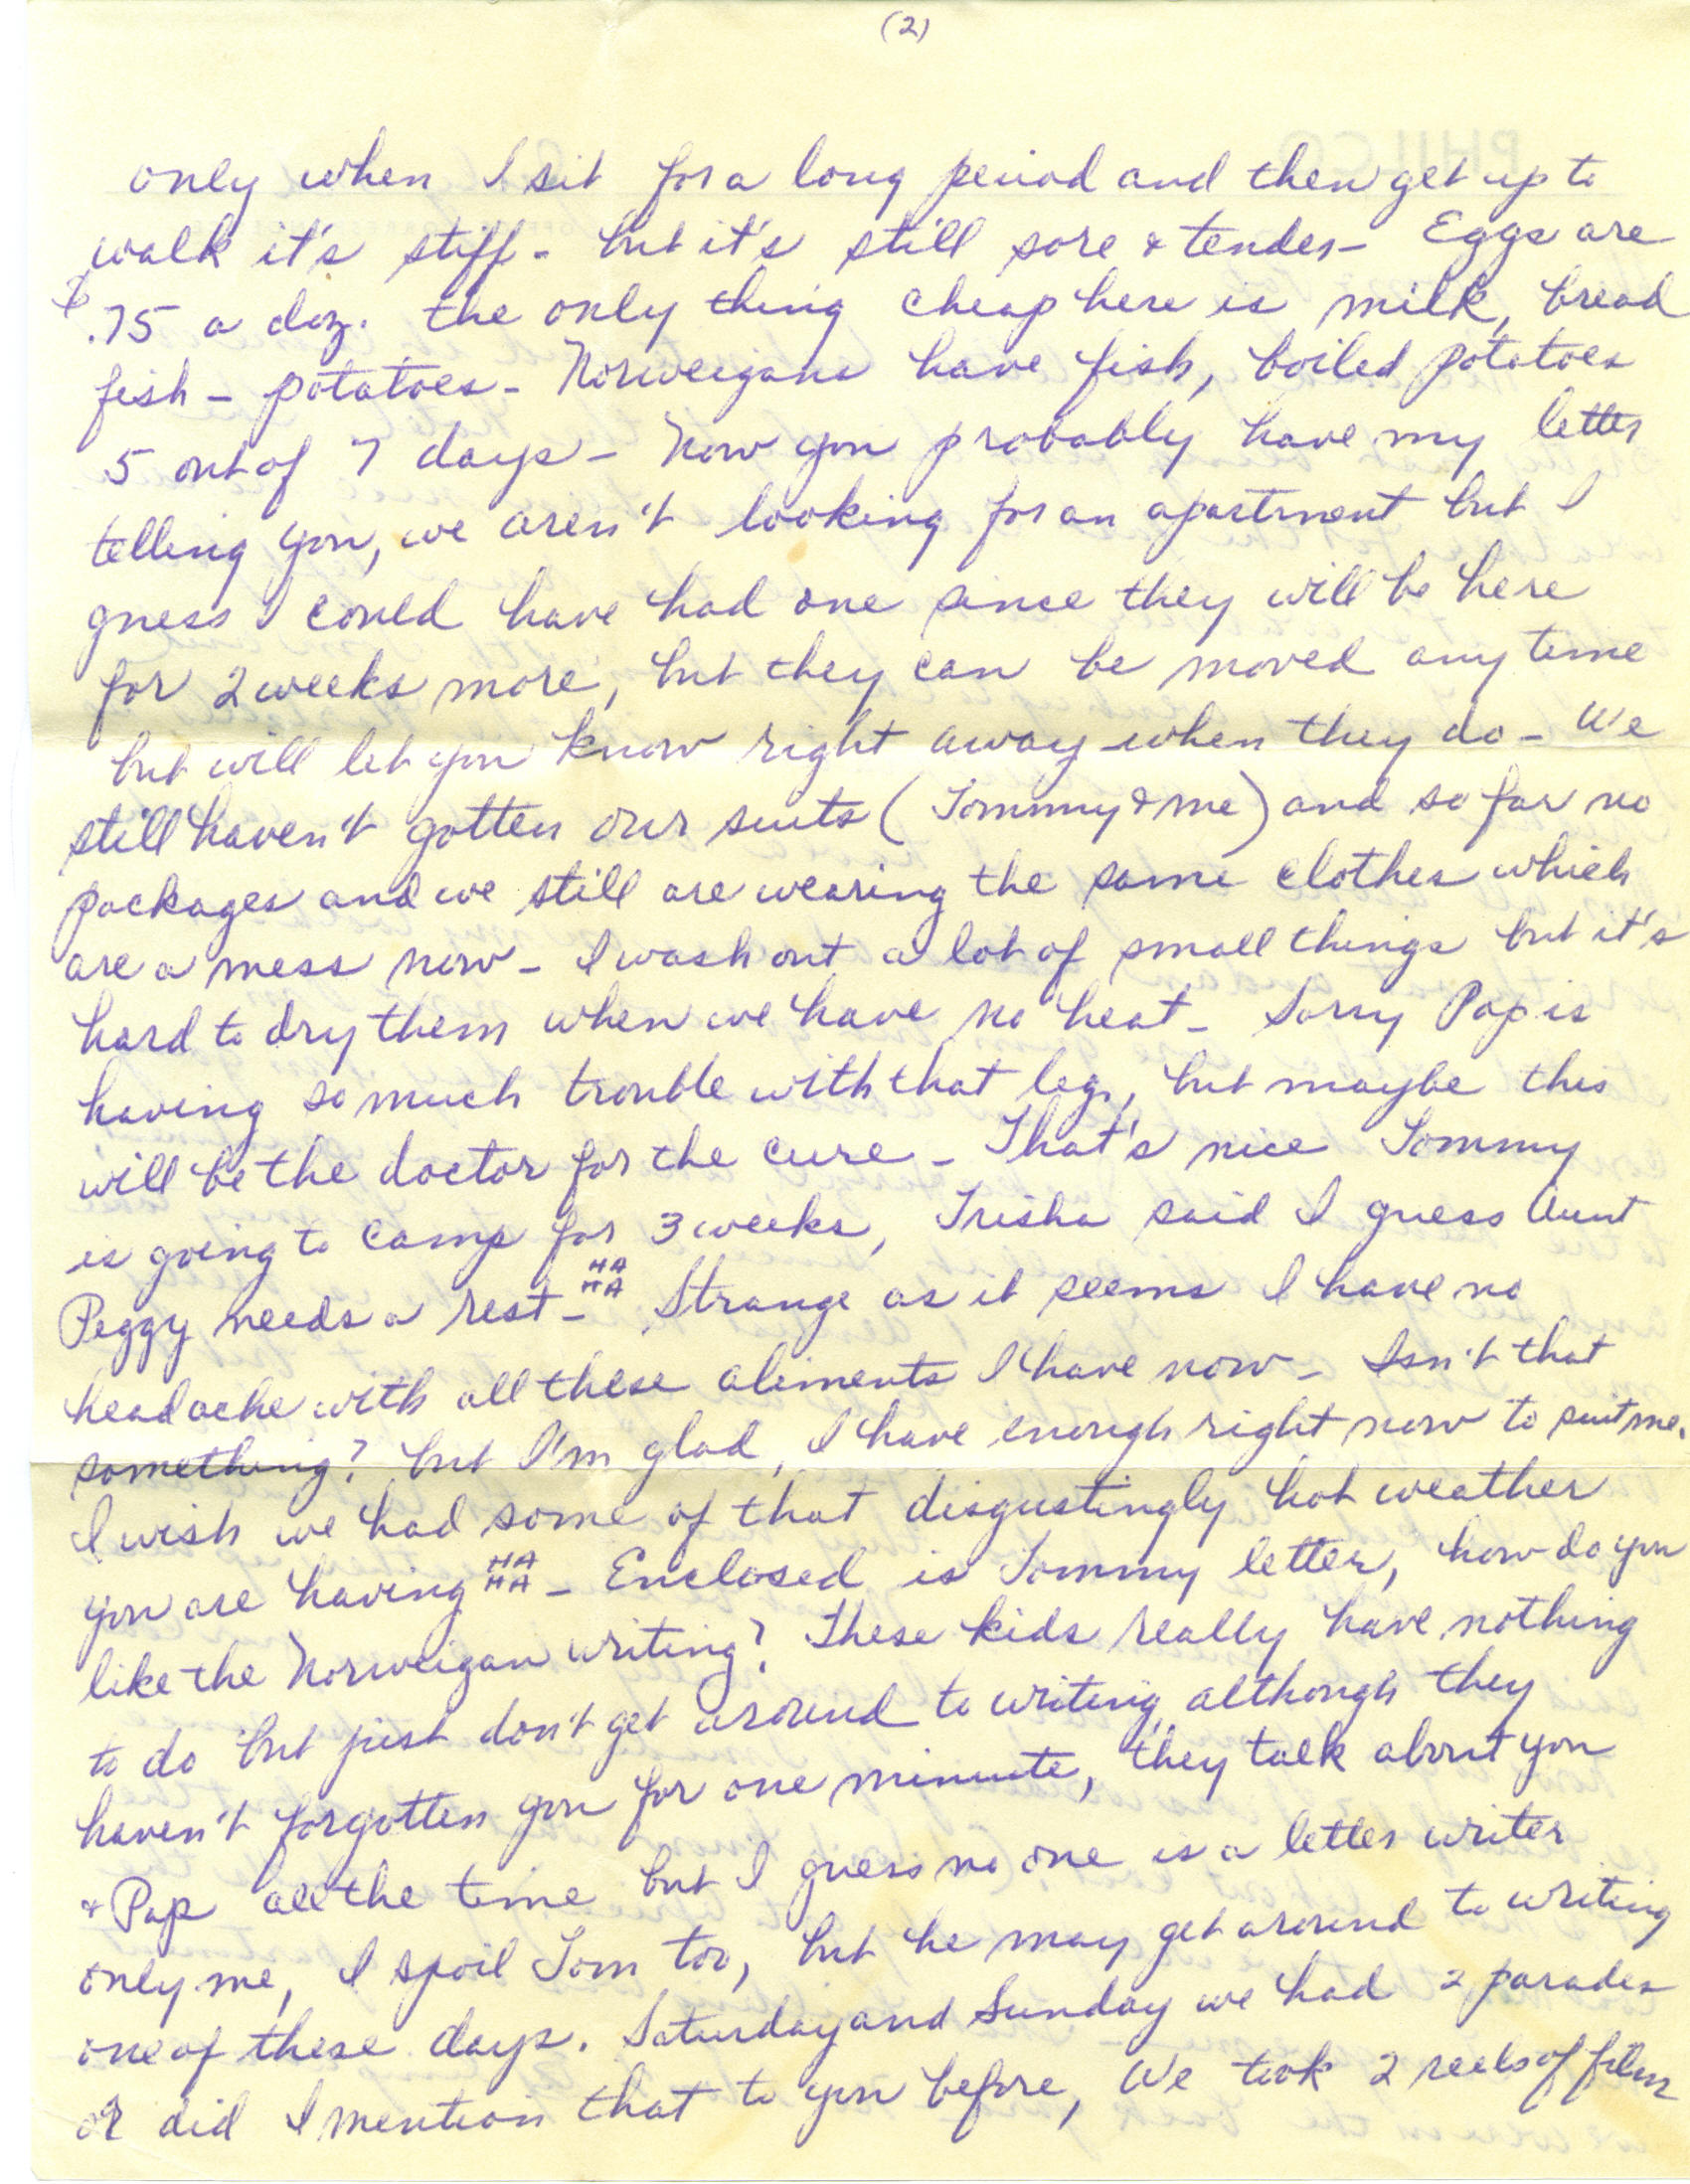 (2)
only when I sit for a long period and then get up to
walk it's stiff - but it's still sore & tender - Eggs are
$.75 a doz. the only thing cheap here is milk, bread
fish - potatoes - Norweigans have fish, boiled potatoes
5 out of 7 days - Now you probably have my letter
telling you, we aren't looking for an apartment but I
guess I could have had one since they will be here
for 2 weeks more, but they can be moved any time
but will let you know right away when they do - We
still haven't gotten our suits (Tommy & me) and so far no
packages and we still are wearing the same clothes which
are a mess now - I wash out a lot of small things but it's
hard to dry them when we have no heat - Sorry Pop is
having so much trouble with that leg, but maybe this
will be the doctor for the cure - That's nice Tommy
is going to camp for 3 weeks, Trisha said I guess Aunt
Peggy needs a rest - HA HA Strange as it seems I have no
headache with all these aliments I have now - Isn't that
something? but I'm glad, I have enough right now to suit me.
I wish we had some of that disgustingly hot weather
you are having HA HA - Enclosed is Tommy letter, how do you
like the Norweigan writing? These kids really have nothing
to do but just don't get around to writing although they
haven't forgotten you for one minute, they talk about you
& Pop all the time but I guess no one is a letter writer
only me, I spoil Tom too, but he may get around to writing
one of these days. Saturday and Sunday we had 2 parades
or did I mention that to you before, We took 2 reels of film